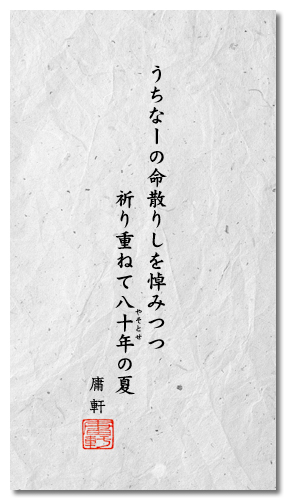 うちなーの命散りしを悼みつつ
祈り重ねて八十年の夏
やそとせ
庸軒
庸軒